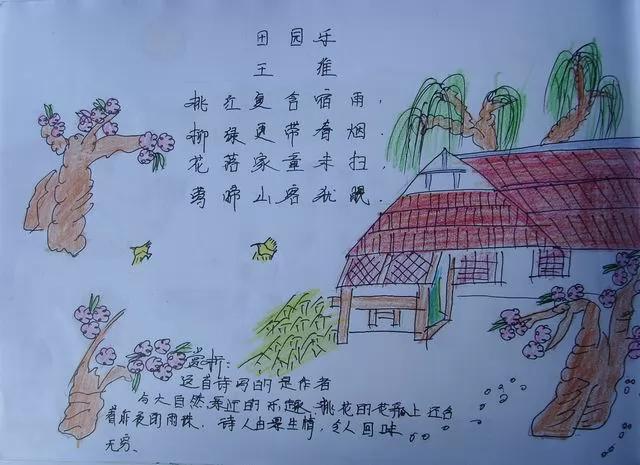 田园乐
王维
桃红复含宿雨,
柳绿更带春烟.
花落家童未扫,
莺啼山客犹眠.
赏析:
这首诗写的是作者
与大自然亲近的乐趣,桃花的花瓣上还含
着昨夜的雨珠,诗人由景生情,令人回味
无穷.